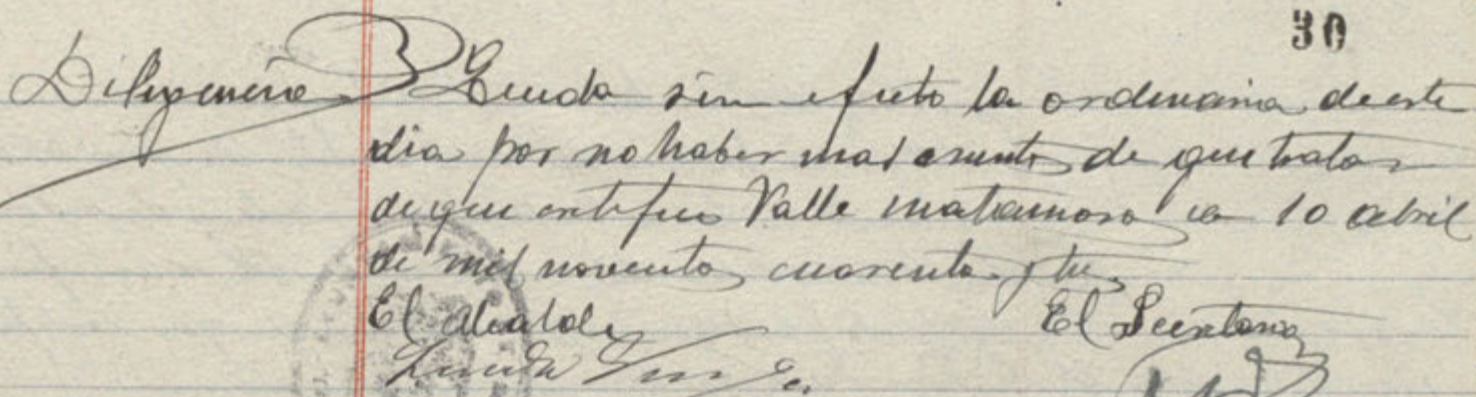 30
Diligencia Queda sin efecto la ordinaria de este
dia por no haber mas asuntos de que tratar
de que certifico Valle matamoros a 10 abril
de mil novecientos cuarenta y tres
El Alcalde El Secretario